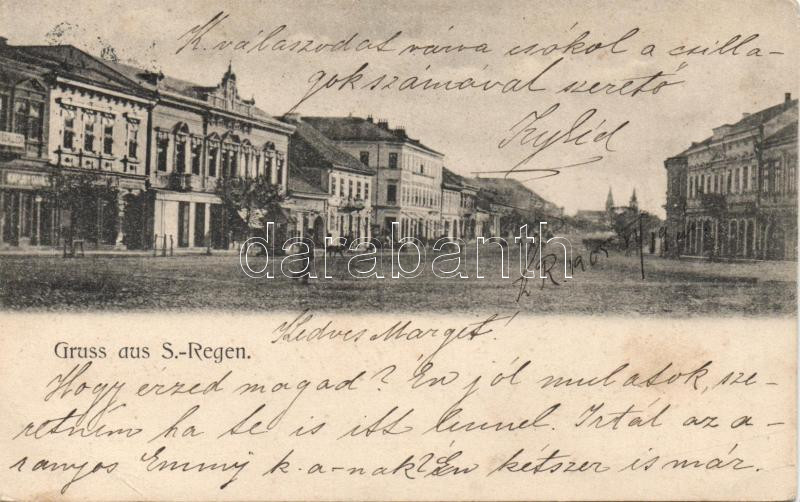 K. válaszodat várva csókol a csilla-
gok számával szerető
darabanth
905
Kedves Marget!
Gruss aus S.-Regen.
Hogy érzed magad? Én jól mulatok, sze-
retném ha te is itt lennél. Irtál az a-
ranyos Emmy k.a-nak? Én kétszer is már.